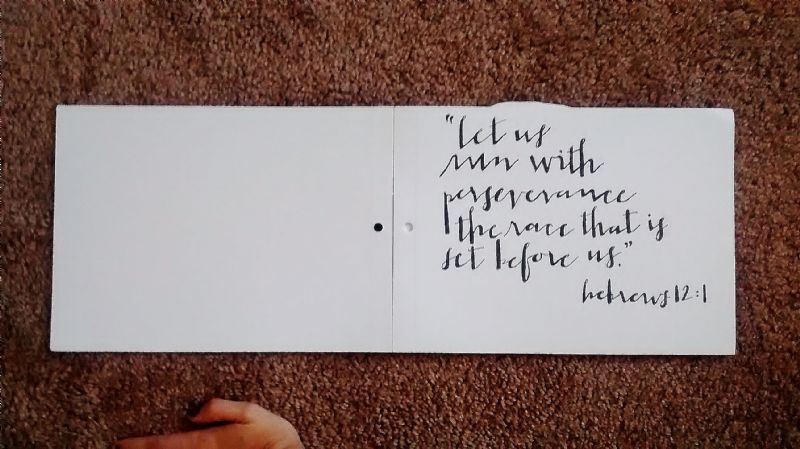 "let us
run with
perseverance
the race that is
set before us."
hebrews 12:1